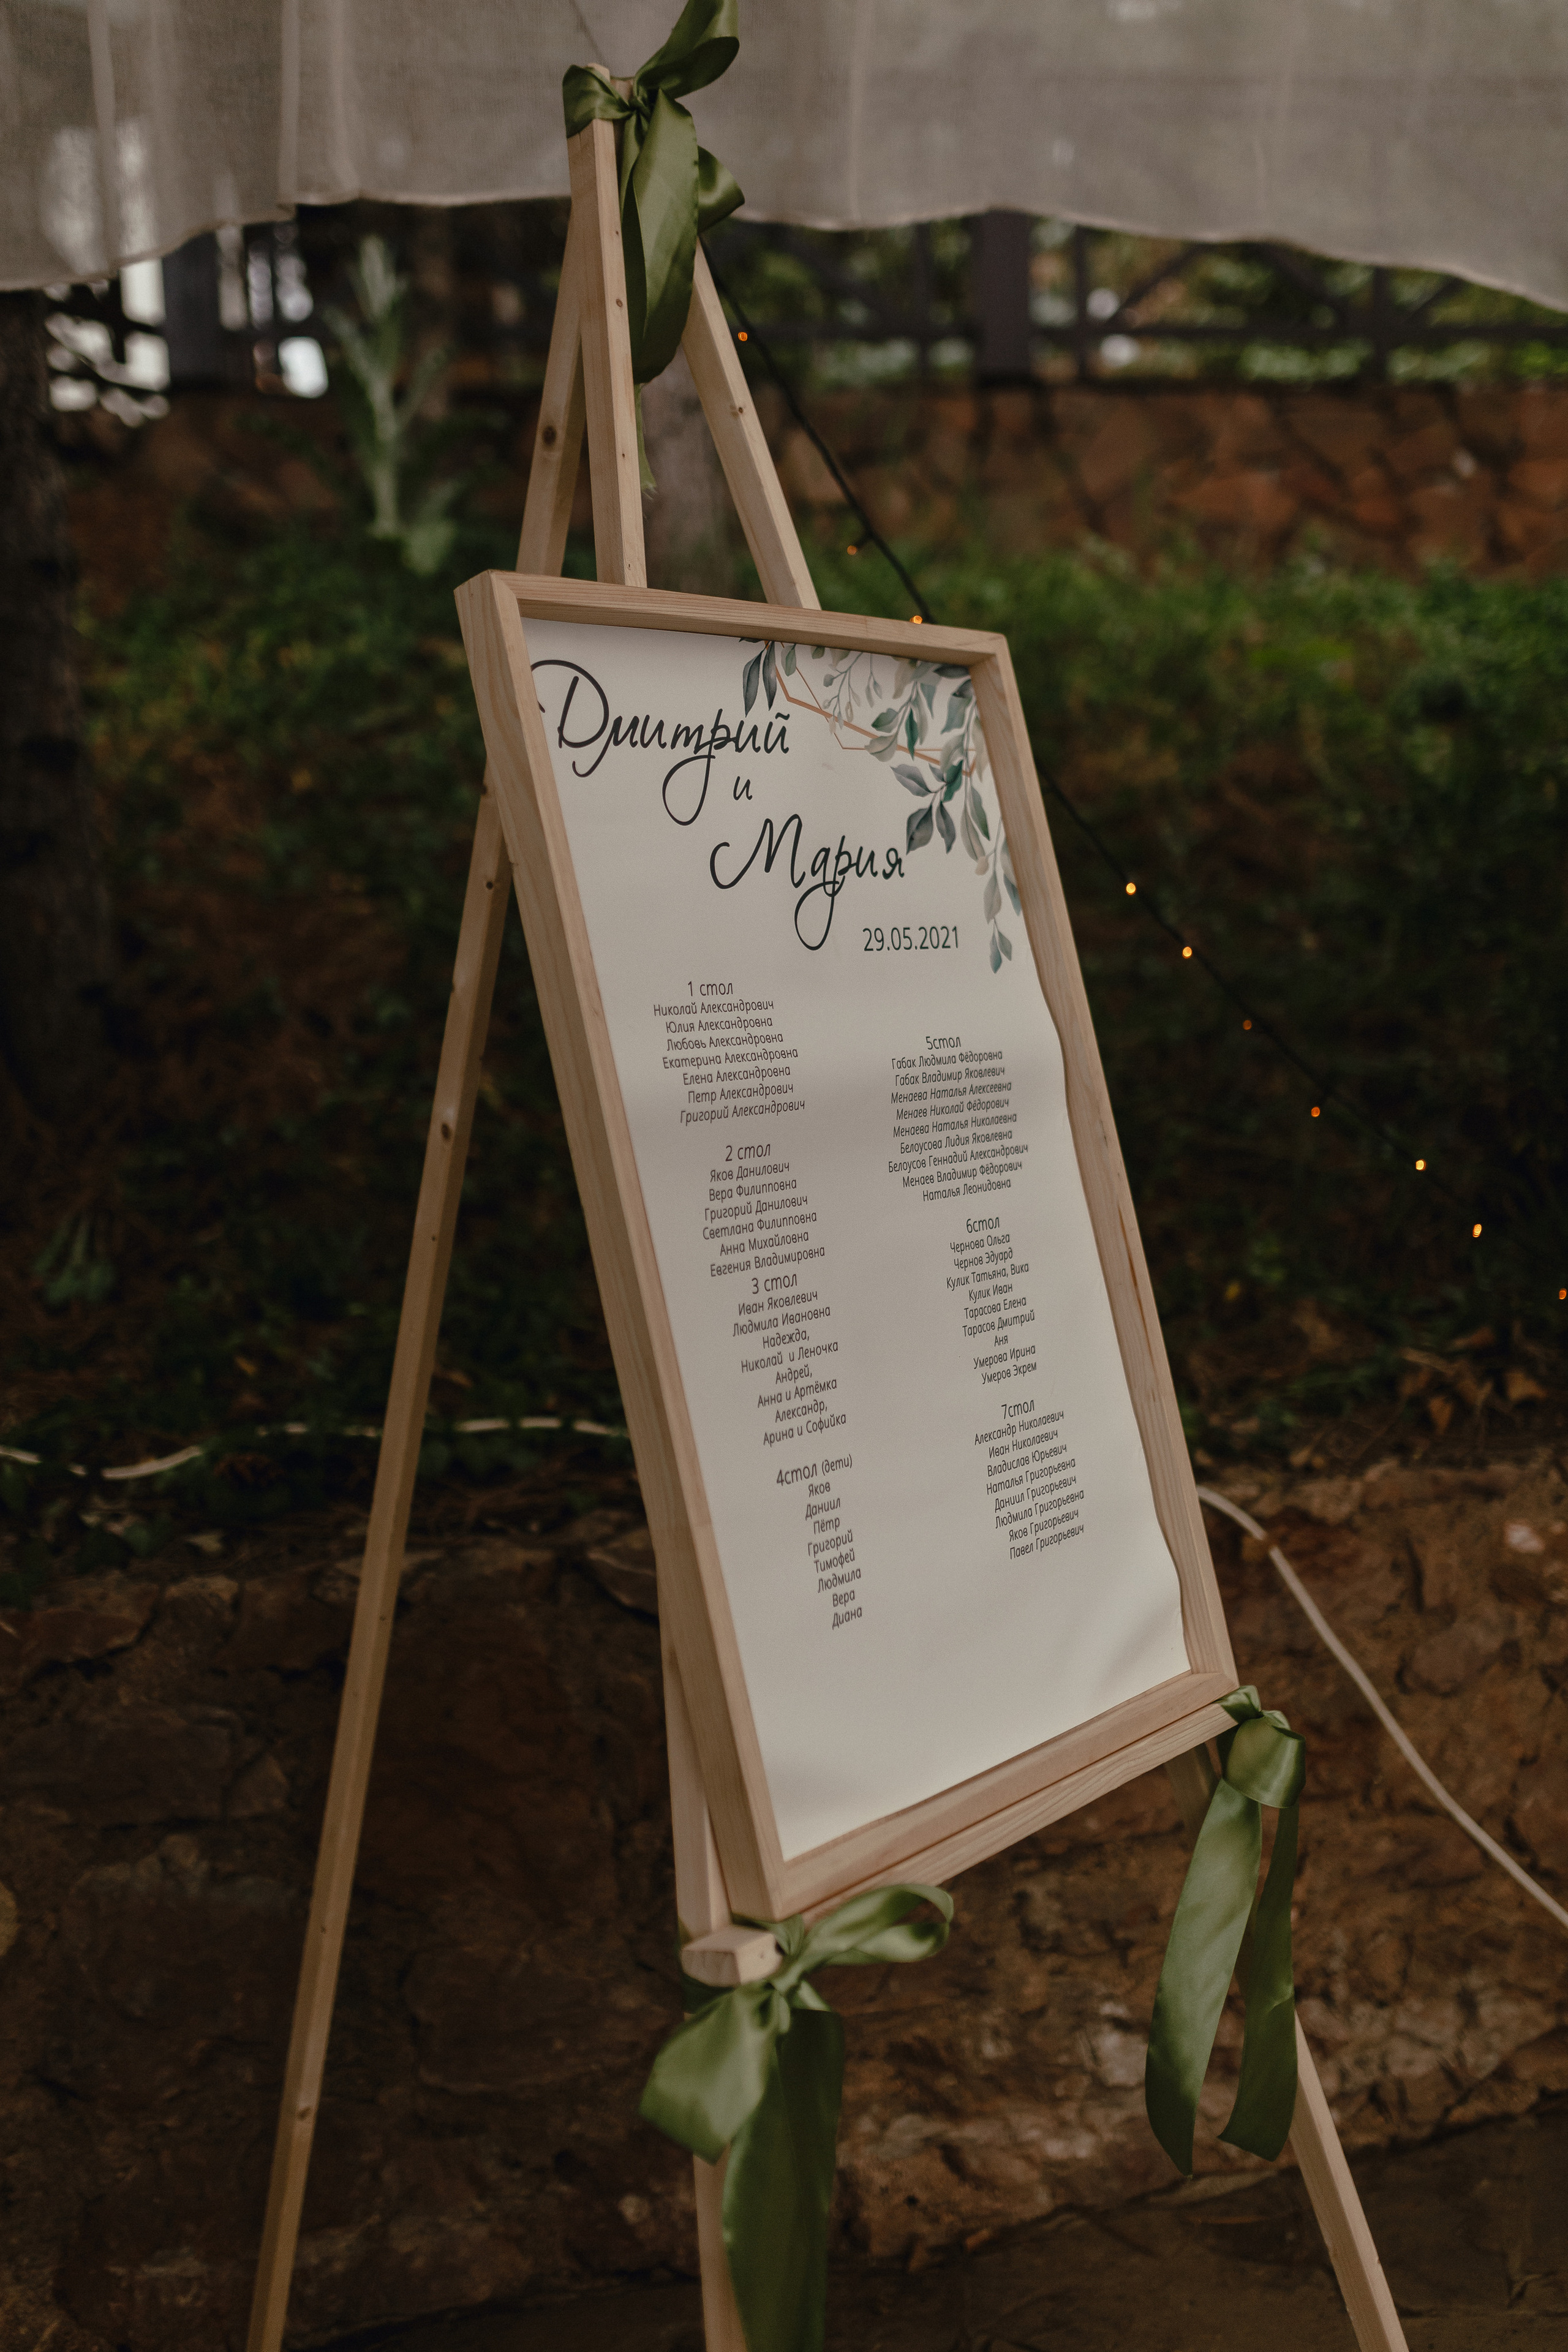 Дмитрий
и
Мария
29.05.2021
1 стол
Николай Александрович
Юлия Александровна
Любовь Александровна
Екатерина Александровна
Елена Александровна
Петр Александрович
Григорий Александрович
2 стол
Яков Данилович
Вера Филипповна
Григорий Данилович
Светлана Филипповна
Анна Михайловна
Евгения Владимировна
3 стол
Иван Яковлевич
Людмила Ивановна
Надежда,
Николай и Леночка
Андрей,
Анна и Артёмка
Александр,
Арина и Софийка
4стол (дети)
Яков
Даниил
Пётр
Григорий
Тимофей
Людмила
Вера
Диана
5стол
Габак Людмила Фёдоровна
Габак Владимир Яковлевич
Менаева Наталья Алексеевна
Менаев Николай Фёдорович
Менаева Наталья Николаевна
Белоусова Лидия Яковлевна
Белоусов Геннадий Александрович
Менаев Владимир Фёдорович
Наталья Леонидовна
6стол
Чернова Ольга
Чернов Эдуард
Кулик Татьяна, Вика
Кулик Иван
Тарасова Елена
Тарасов Дмитрий
Аня
Умерова Ирина
Умеров Экрем
7стол
Александр Николаевич
Иван Николаевич
Владислав Юрьевич
Наталья Григорьевна
Даниил Григорьевич
Людмила Григорьевна
Яков Григорьевич
Павел Григорьевич